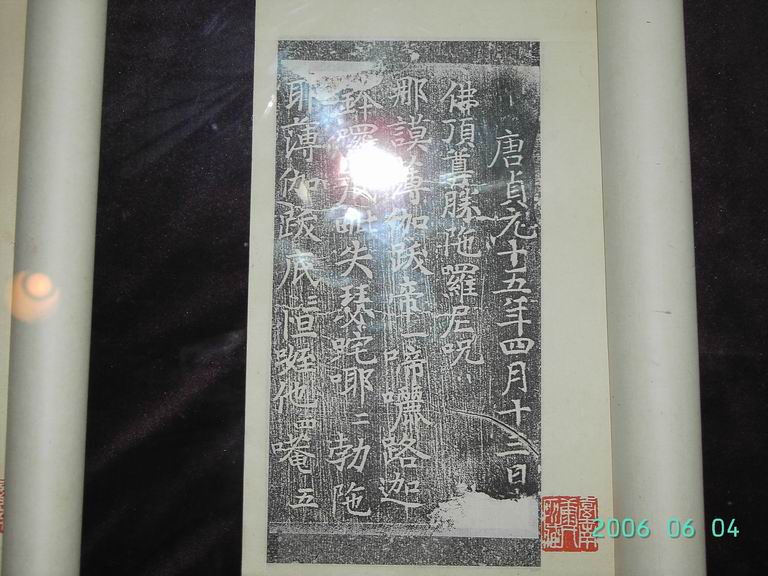 唐貞元十五年四月十三日
佛頂尊勝陁羅尼呪
那謨薄伽跋帝一啼囇路迦
鉢囉底毗失瑟咤耶二勃陁
耶薄伽跋底三怛姪他四唵五
2006 06 04